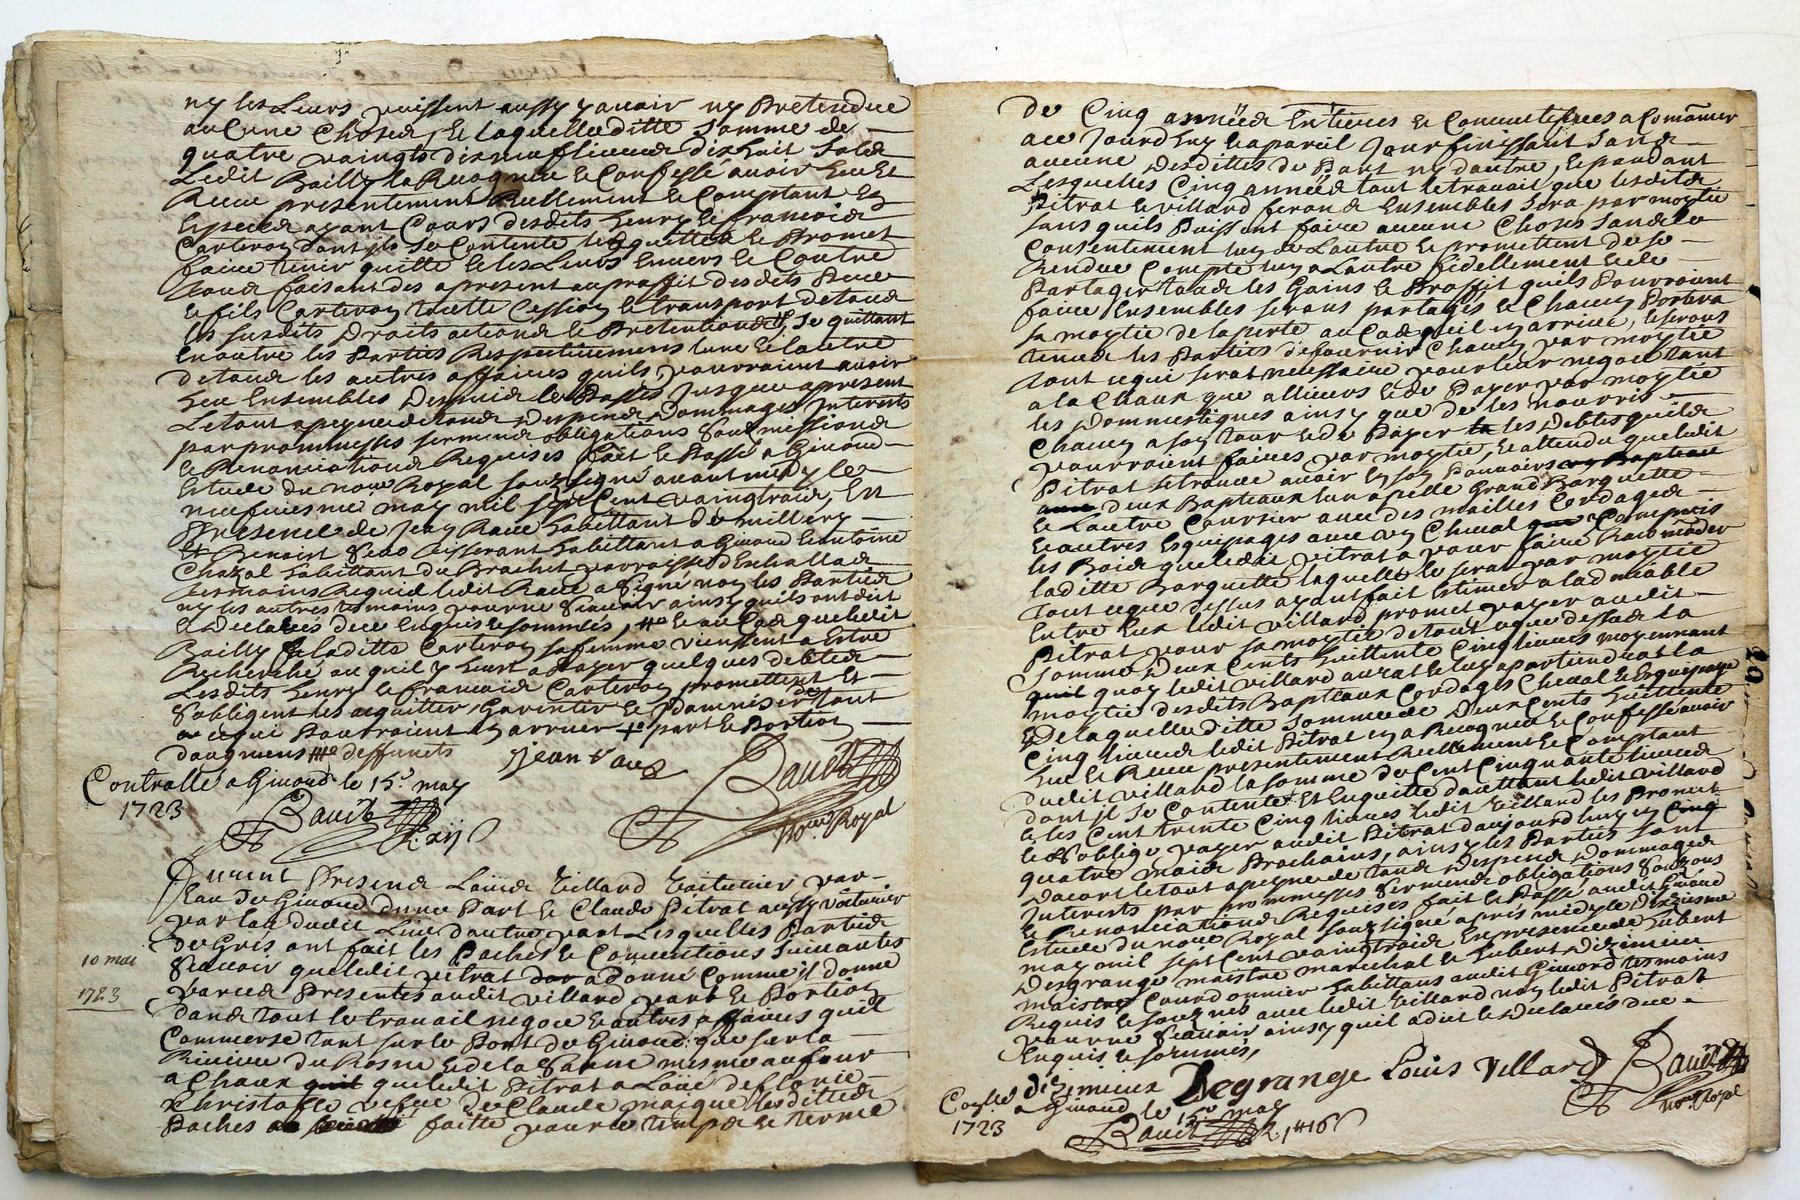 ny les Leurs puissent aussy y avoir ny Pretendre
aucune Choses, Et laquelleditte Somme de
quatre vaingts dix neuf livres dix huit Sols
Ledit Bailly la Recognu Et Confessé avoir Heu Et
Receu presentement Reellement Et Comptant Et
Especes ayant Cours desdits henry Et francois
Carteron dont jls Se Contente les quitte Et Promet
faire tenir quitte Et les Leurs Envers Et Contre
tous faisant des apresent au proffit desdits Pere
Et fils Carteron toutte Cession Et transport de tous
les Susdits Droits actions Et Pretentions Se quittant
En outre les Parties Respectivement lune Et lautre
de tous les autres affaires quils pourraient avoir
heu Ensembles Depuis le Passé Jusques apresent
Le tout apeyne de tous Despens Dommages Jnterests
par prommesses serments obligations Soubmissions
Et Renonciations Requises fait Et Passé a Givord
Estude du nore Royal Souzsigné avant midy le
neufviesme may mil sept Cent vaingtrois, En
Presence de Jean Raue habittant de millery
Et Benoist tisserant habittant a Givord Et antoine
Chazal habittant du Brachet parroisse D'Eschallas
tesmoins Requis ledit Raue a Signé non les Parties
ny les autres tesmoins pour ne Scavoir ainsy quils ont dit
Et Declarés de ce Enquis Et sommés, Et au Cas que ledit
Bailly Et laditte Carteron sa femme vienssent a Estre
Recherché ou quil y heust a Payer quelques debtes
Lesdits henry Et francois Carteron promettent Et
S'obligent les acquitter, Garentir Et jdamniser de tout
ce qui Pourraient En arriver part Et Portion
daugmens deffuncts
Controlle a Givord le 15e may
1723
Royal
10 mai
1723
Furent Presens Loüis Villard voiturier par
Eau de Givord d'une Part Et Claude Pitrat aussy voiturier
par Eau dudit Lieu d'autre part Lesquelles Parties
de Gris ont fait les Paches Et Conventions Suivantes
Scavoir que ledit pitrat a donné Comme jl donne
par ces Presentes audit villard part Et Portion
dans tout le travail negoce Et autres affaires quil
Commerse tant sur le Port de Givord que sur la
Riviere du Rosne Et de la Saone mesme au four
a Chaux que ledit Pitrat a Loüé de
Christofle de Claude maigue lesdittes
Paches faitte pour le temps Et terme
de Cinq années Entieres Et Consecutifves a Comancer
a ce Jourdhuy Et a pareil Jour finissant Sans
aucune desdittes de Part ny dautre, Et pandant
Lesquelles Cinq années tout le travail que lesdits
Pitrat Et villard feront Ensembles Sera par moytié
sans quils Puissent faire aucune Choses Sans le
Consentement lun de Lautre Et promettent de se
Rendre Compte lun a Lautre fidellement Et de
Partager tous les Gains Et Proffit quils Pourraient
faire Ensembles serons partagés Et Chacun Portera
sa moytié de la perte au Cas quil En arrive, Et serons
tenus les Parties de fournir Chacun par moytié
tout ce qui serat necessaire pour leur negoce tant
a la Chaux que allieurs Et de Payer par moytié
les Dommestiques ainsy que de les nourris
Chacun a son tour Et de Payer les Debtes quils
pourraient faires par moytié, Et attendu que ledit
Pitrat se trouve avoir En son Pouvoirs
deux Bapteaux lun apellé Grand Barquette
Et Lautre Coursier avec des mailles Cordages
Et autres Esquipages avec un Cheval Compris
les Bois que ledit Pitrat a pour faire Racomoder
laditte Barquette laquelle le serat par moytié
tout ce que dessus ayant fait Estimer a lamiable
Entre Eux ledit villard promet payer audit
Pitrat pour sa moytié de tout ce que dessus la
Somme Deux Cents huittente Cinq livres moyennant
quoy ledit villard aurat Et luy apartiendrat la
moytié desdits Bapteaux Cordages Cheval Et Esquipage
De laquelleditte Somme de Deux Cents huittente
Cinq livres ledit Pitrat En a Recognu Et Confessé avoir
heu Et Receu presentement Reellement Et Comptant
dudit villard la somme de Cent Cinquante livres
dont jl Se Contente Et En quitte dautant ledit villard
Et les Cent trente Cinq livres ledit villard les Promet
Et S'oblige payer audit Pitrat daujourdhuy En
quatre mois Prochains, ainsy les Parties sont
Dacort le tout apeyne de tous Despens Dommages
Jnterests par prommesses Serments obligations Souzons
Et Renonciations Requises fait Et Passé audit Givord
Estude du nore Royal souzsigné apres midy le dixiesme
may mil sept Cent vaingtrois En presence de hubert
Desgrange maistre marechal Et hubert Dizimieu
maistre Courdonnier habittans audit Givord tesmoins
Requis Et souzsignés avec ledit villard non ledit Pitrat
pour ne Scavoir ainsy quil a dit Et Declarés de ce
Enquis Et sommés,
dizimieux Degrange Louis Villard
a Givord le 15e may
1723
nore Royal